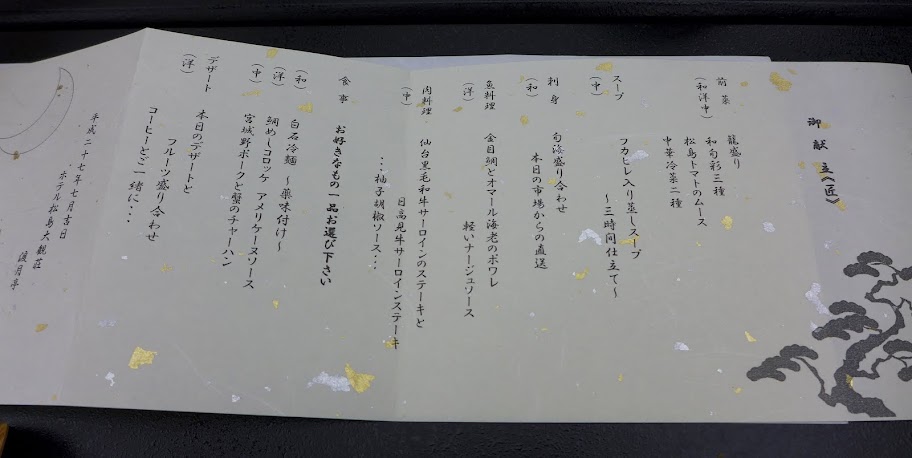 御献立《匠》
前菜　籠盛り
(和洋中)　和旬彩三種
松島トマトのムース
中華冷菜二種
スープ　フカヒレ入り蒸しスープ
(中)　～三時間仕立て～
刺身　旬海盛り合わせ
(和)　本日の市場からの直送
魚料理　金目鯛とオマール海老のポワレ
(洋)　軽いナージュソース
肉料理　仙台黒毛和牛サーロインのステーキと
(中)　日高見牛サーロインステーキ
・・・柚子胡椒ソース・・・
食事　お好きなもの一品お選び下さい
(和)　白石冷麺～薬味付け～
(洋)　鯛めしコロッケ　アメリケーヌソース
(中)　宮城野ポークと蟹のチャーハン
デザート　本日のデザートと
(洋)　フルーツ盛り合わせ
コーヒーとご一緒に・・・
平成二十七年七月吉日
ホテル松島大観荘
渡月亭